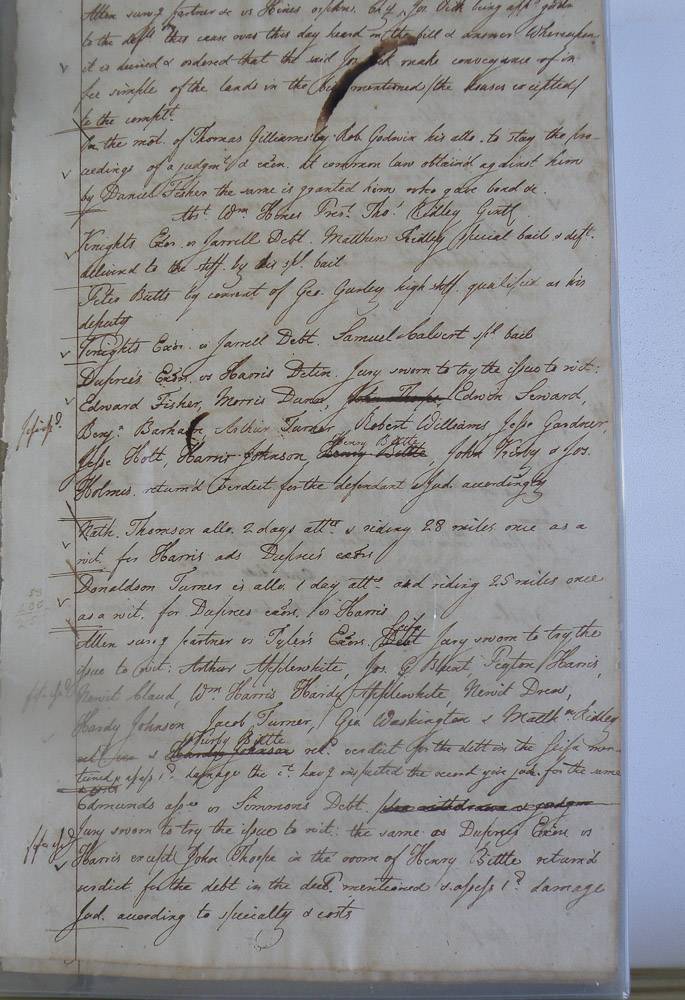 Allen surv.g partner &c vs Hines orphans. Jos. being app.d guardn
to the def.ts this cause was this day heard on the bill & answer Whereupon
it is decreed & ordered that the said Jos. make conveyance of in
fee simple of the lands in the bill mentioned /the houses excepted/
to the compl.t
On the mot. of Thomas Gilliams by Rob. Godwin his atto. to stay the pro-
ceedings of a judgm.t & exon. at common law obtained against him
by Daniel Fisher the same is granted him who gave bond &c.
Abs.t W.m Hines Pres.t Tho.s Ridley Gent.
Knights Exor. vs Jarrell Debt. Matthew Ridley special bail & deft.
deliverd to the sheff. by his spl. bail
Peter Butts by consent of Geo. Gurley high sheff. qualified as his
deputy
Knights Exor. vs Jarrell Debt. Samuel Calvert spl. bail
Duprees Exors. vs Harris Detin. Jury sworn to try the issue to wit:
Edward Fisher, Morris Dunn, John Thorpe, Edwin Seward,
Benj.n Barham, Arthur Turner, Robert Williams Jesse Gardner,
Jesse Holt, Harris Johnson, Henry Bittle Henry Bittle, John Kirby & Jos.
Holmes. returnd verdict for the defendant & jud. accordingly
Nath. Thomson allo. 2 days att.ce & riding 28 miles once as a
wit. for Harris ads Duprees exors
Donaldson Turner is allo. 1 day att.ce and riding 25 miles once
as a wit. for Duprees exors. vs Harris
Allen surv.g partner vs Tyler's Exors. Debt Jury sworn to try the
issue to wit: Arthur Applewhite, Jos. G Blunt, Peyton Harris,
Newit Claud, W.m Harris Hardy Applewhite, Newit Drew,
Hardy Johnson Jacob Turner, Geo. Washington & Matth.w Ridley
& Kirby Bittle Hardy Johnson ret.d verdict for the debt in the men-
tioned & assess 1.d damage the c.t hav.g inspected the record give jud. for the same
Edmunds ass.ee vs Simmons Debt. plea withdrawn & judgm
Jury sworn to try the issue to wit: the same as Duprees Exors vs
Harris except John Thorpe in the room of Henry Bittle returnd
verdict for the debt in the decl. mentioned & assess 1.d damage
Jud. according to specialty & costs